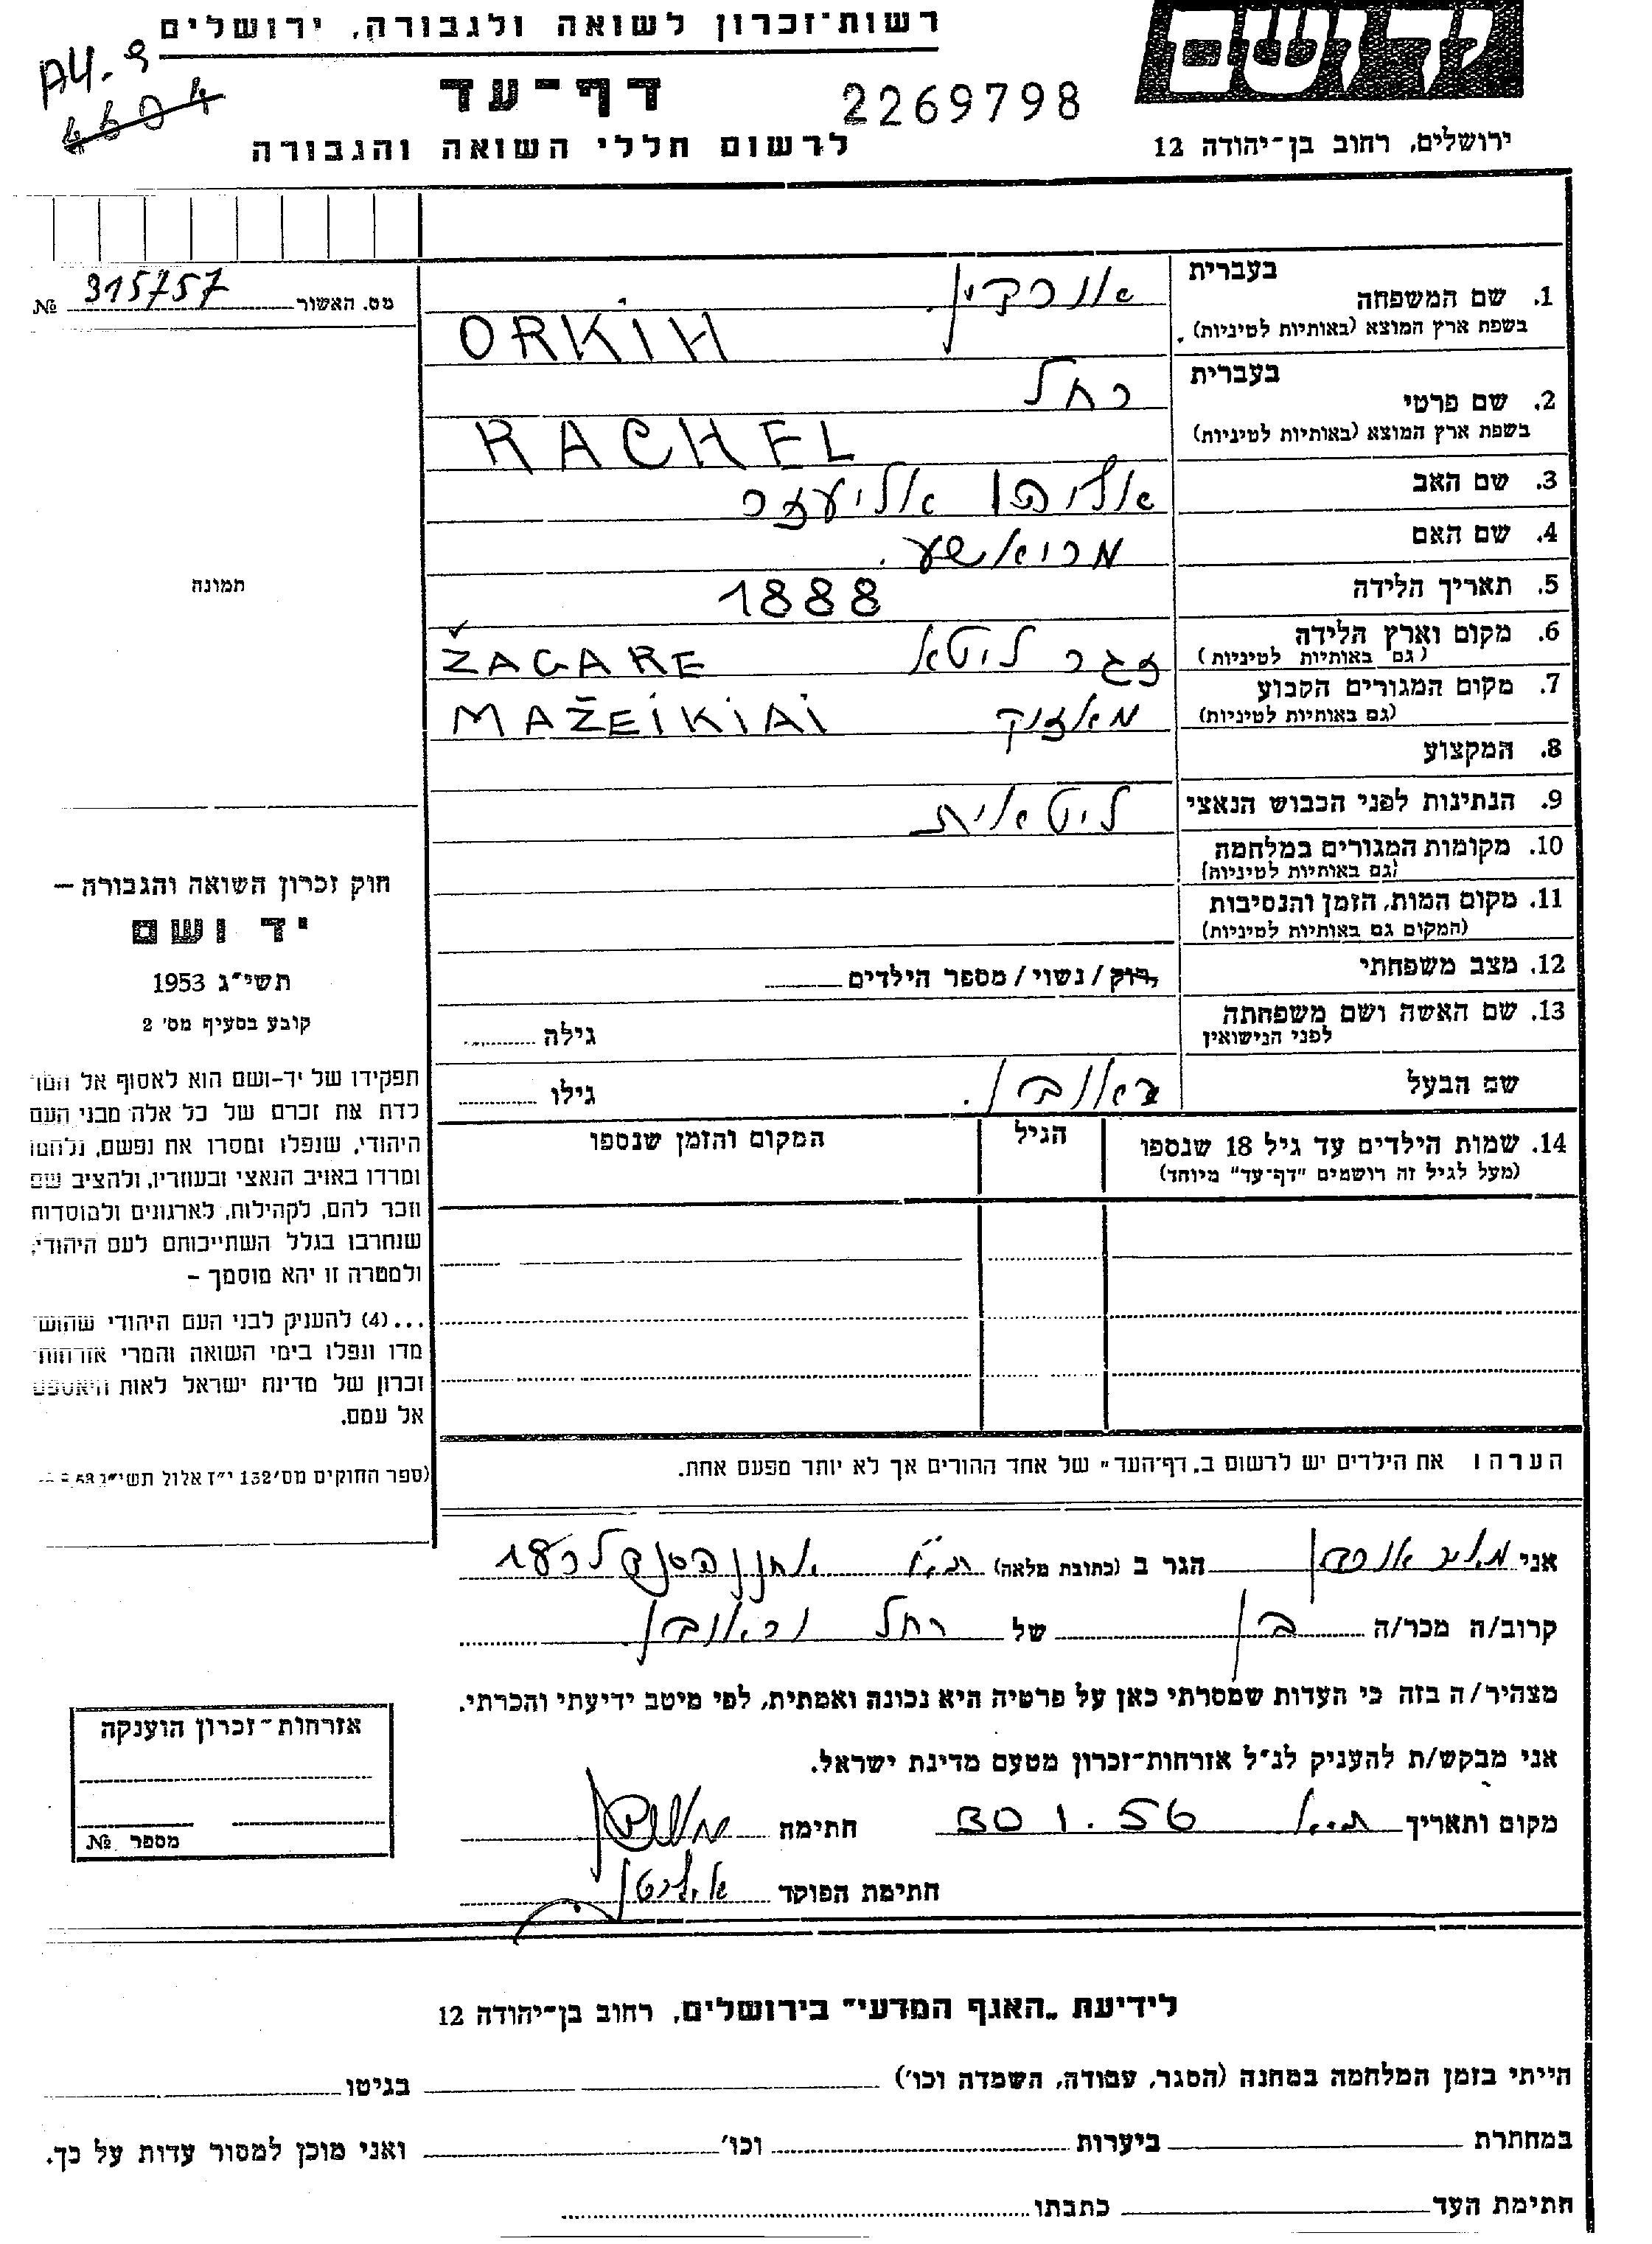 רשות־זכרון לשואה ולגבורה, ירושלים
A4-9
4604
דף־עד
2269798
יד ושם
לרשום חללי השואה והגבורה
ירושלים, רחוב בן־יהודה 12
מס. האשור 315757 №
תמונה
1. שם המשפחה
בעברית אורקין
בשפת ארץ המוצא (באותיות לטיניות) ORKIH
2. שם פרטי
בעברית רחל
בשפת ארץ המוצא (באותיות לטיניות) RACHEL
3. שם האב אליעזר
4. שם האם מריאשע.
5. תאריך הלידה 1888
6. מקום וארץ הלידה זגר ליטא ŽAGARE
(גם באותיות לטיניות)
7. מקום המגורים הקבוע MAŽEIKIAI
(גם באותיות לטיניות)
8. המקצוע
9. הנתינות לפני הכבוש הנאצי ליטאית
10. מקומות המגורים במלחמה
(גם באותיות לטיניות)
11. מקום המות, הזמן והנסיבות
(המקום גם באותיות לטיניות)
12. מצב משפחתי רוק/נשוי/מספר הילדים
13. שם האשה ושם משפחתה
לפני הנישואין
גילה
שם הבעל ראובן.
גילו
14. שמות הילדים עד גיל 18 שנספו
(מעל לגיל זה רושמים "דף־עד" מיוחד)
הגיל
המקום והזמן שנספו
חוק זכרון השואה והגבורה –
יד ושם
תשי״ג 1953
קובע בסעיף מס׳ 2
תפקידו של יד-ושם הוא לאסוף אל המו־
לדת את זכרם של כל אלה מבני העם
היהודי, שנפלו ומסרו את נפשם, נלחמו
ומרדו באויב הנאצי ובעוזריו, ולהציב שם
וזכר להם, לקהילות, לארגונים ולמוסדות
שנחרבו בגלל השתייכותם לעם היהודי;
ולמטרה זו יהא מוסמך –
...(4) להעניק לבני העם היהודי שהוש־
מדו ונפלו בימי השואה והמרי אזרחות־
זכרון של מדינת ישראל לאות היאספם
אל עמם.
(ספר החוקים מס׳132 י״ז אלול תשי״ג
הערה: את הילדים יש לרשום ב„דף־העד" של אחד ההורים אך לא יותר מפעם אחת.
אני מאיר אורקין הגר ב (כתובת מלאה)
קרוב/ה מכר/ה בן של רחל וראובן.
מצהיר/ה בזה כי העדות שמסרתי כאן על פרטיה היא נכונה ואמתית, לפי מיטב ידיעתי והכרתי.
אני מבקש/ת להעניק לנ״ל אזרחות־זכרון מטעם מדינת ישראל.
מקום ותאריך 30 1. 56 חתימה
חתימת הפוקד
אזרחות־זכרון הוענקה
מספר №
לידיעת „האגף המדעי" בירושלים, רחוב בן־יהודה 12
הייתי בזמן המלחמה במחנה (הסגר, עבודה, השמדה וכו׳) בגיטו
במחתרת ביערות וכו׳ ואני מוכן למסור עדות על כך.
חתימת העד כתבתו